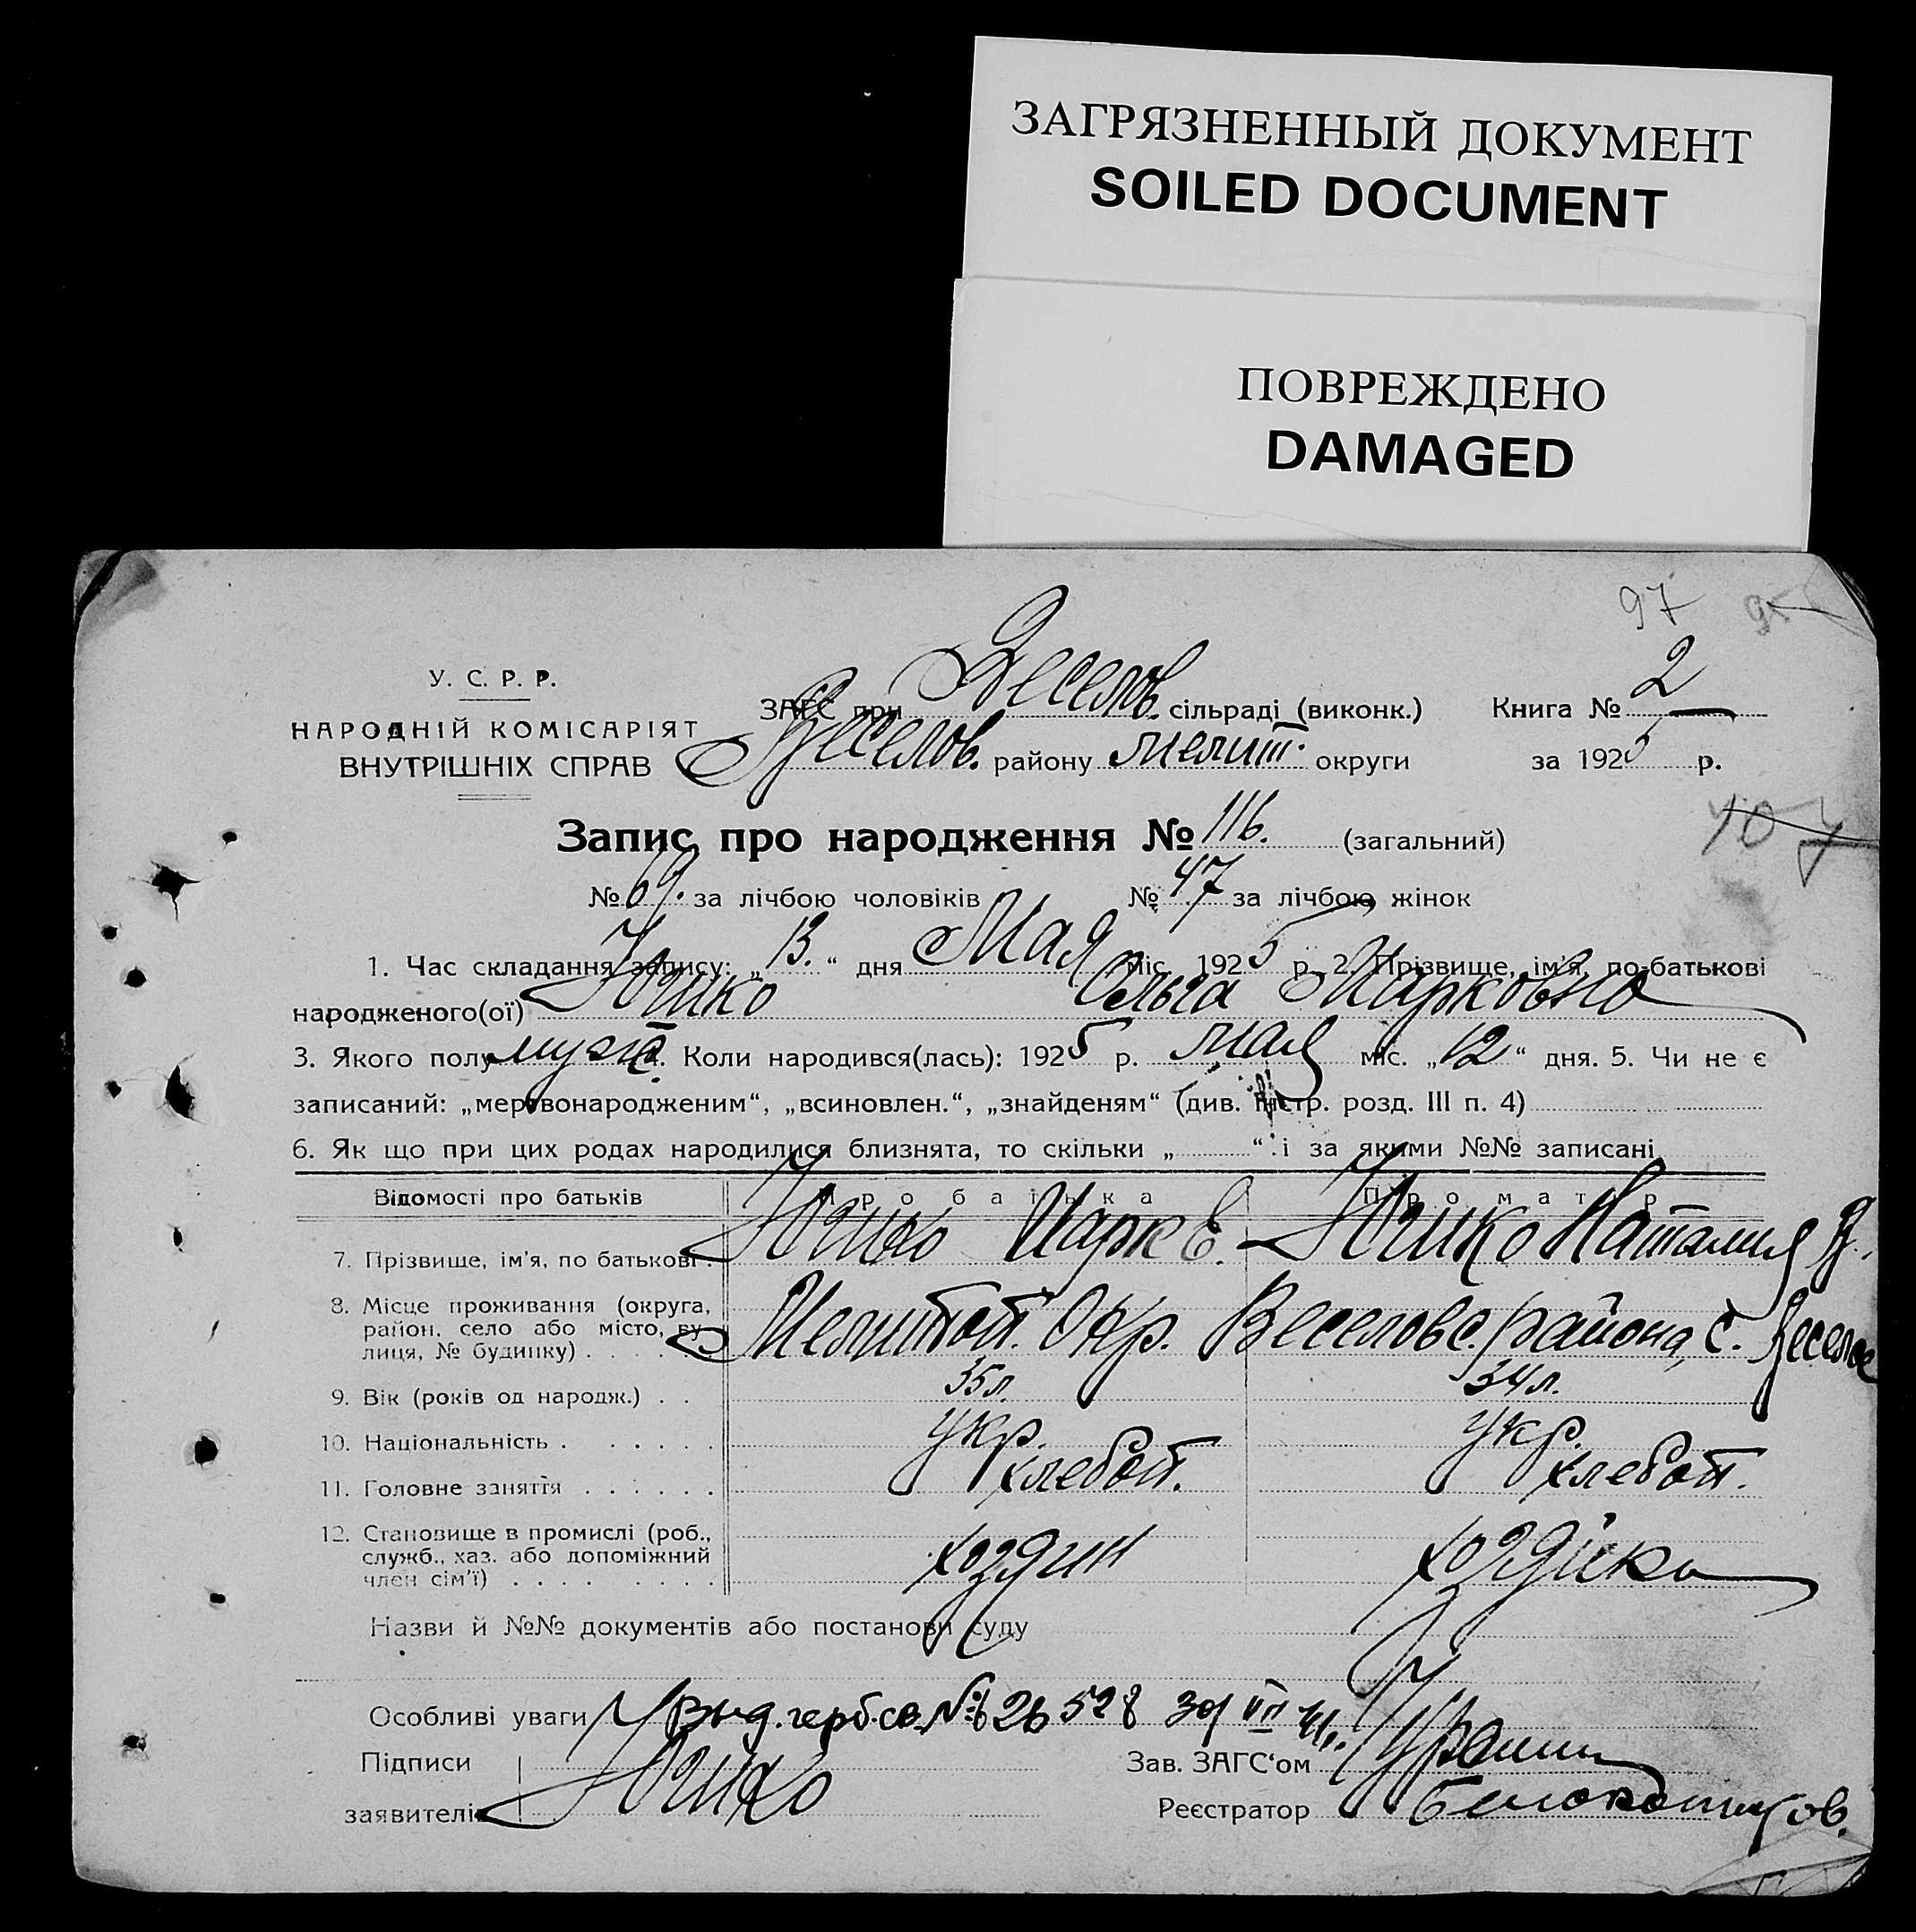 ЗАГРЯЗНЕННЫЙ ДОКУМЕНТ
SOILED DOCUMENT
ПОВРЕЖДЕНО
DAMAGED
97
У. С. Р. Р.
НАРОДНІЙ КОМІСАРІЯТ
ВНУТРІШНІХ СПРАВ
ЗАГС при Веселов. сільраді (виконк.)
Веселов. району Мелит. округи
Книга № 2
за 1925 р.
107
Запис про народження № 116. (загальний)
№ 69. за лічбою чоловіків № 47 за лічбою жінок
1. Час складання запису: „13.“ дня Мая міс. 1925 р. 2. Прізвище, ім'я, по-батькові
народженого(ої) Ольга Марковна
3. Якого полу 4. Коли народився(лась): 1925 р. мая міс. „12“ дня. 5. Чи не є
записаний: „мертвонародженим“, „всиновлен.“, „знайденям“ (див. інстр. розд. III п. 4)
6. Як що при цих родах народилися близнята, то скільки „ “ і за якими №№ записані
Відомості про батьків Про батька Про матір
7. Прізвище, ім'я, по батькові Марк Наталия
8. Місце проживання (округа,
район, село або місто, ву-
лиця, № будинку) Мелитоп. Окр. Веселовс. района, с. Веселое
9. Вік (років од народж.) 35 л. 34 л.
10. Національність укр. укр.
11. Головне заняття хлебоп. хлебоп.
12. Становище в промислі (роб.,
служб., хаз. або допоміжний
член сім'ї) хозяин хозяйка
Назви й №№ документів або постанови суду
Особливі уваги Выд. герб. св. №
Підписи
заявителів
Зав. ЗАГС'ом
Реєстратор